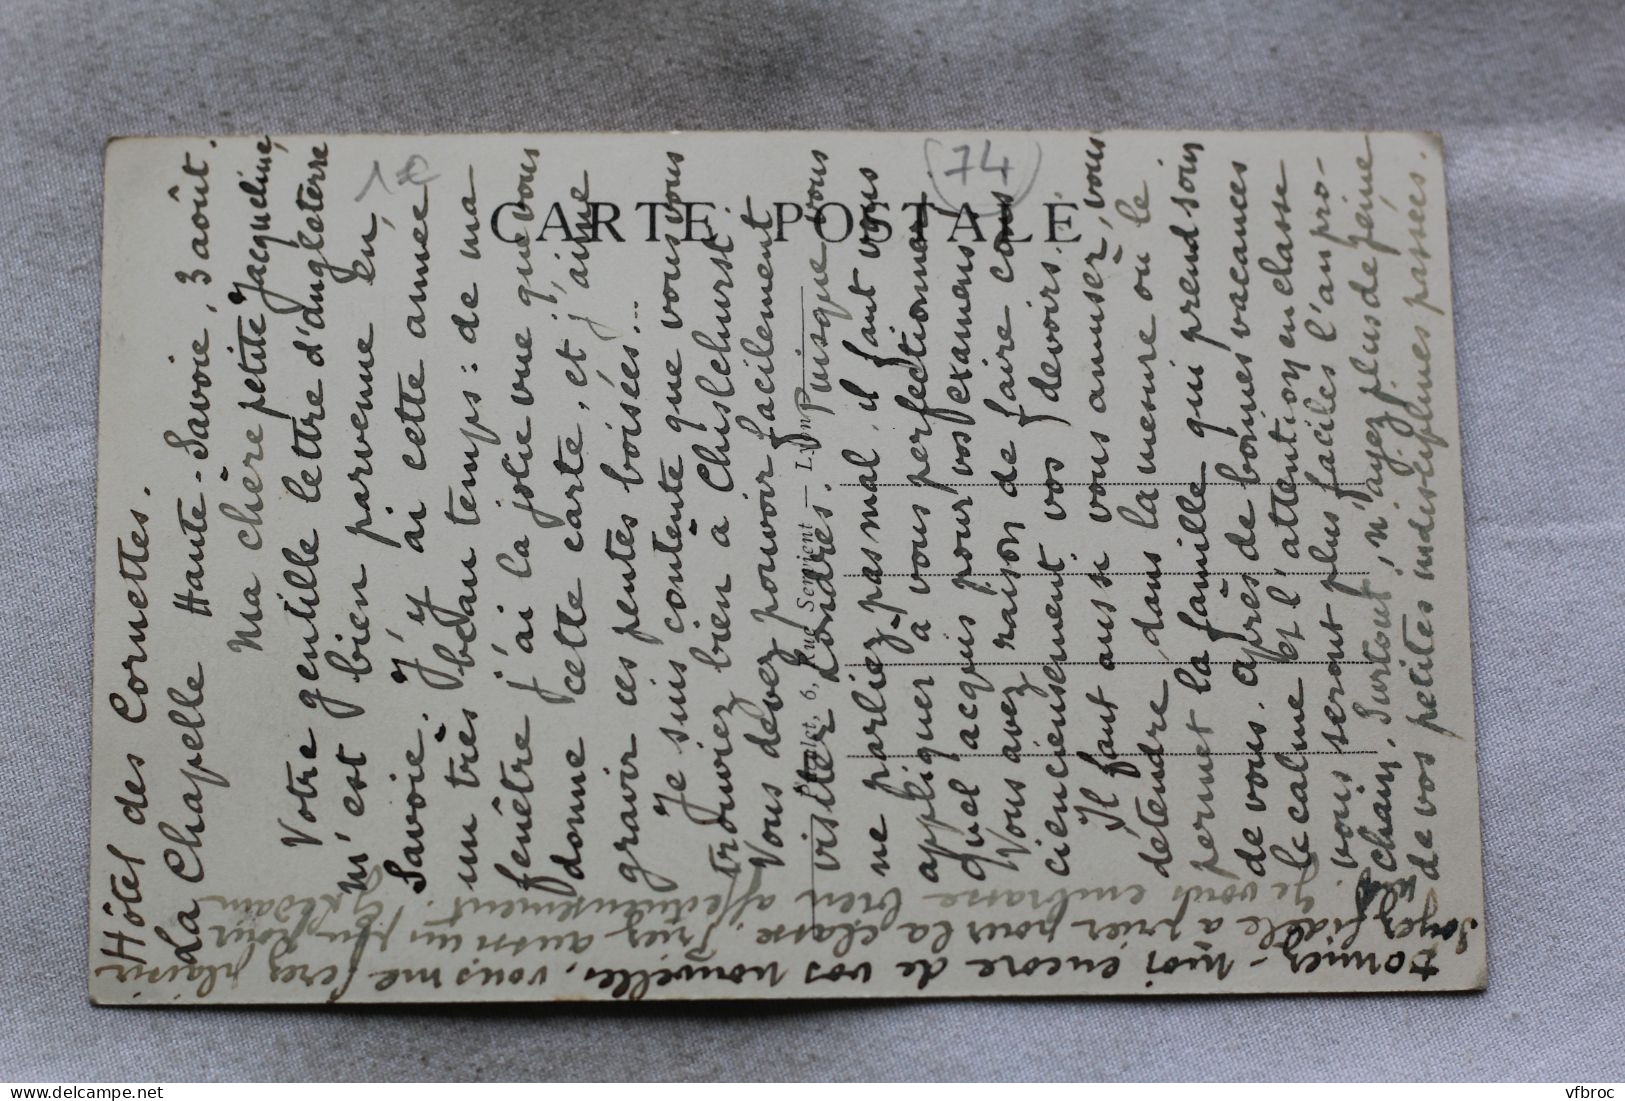 Hôtel des Cornettes.
La Chapelle Haute-Savoie, 3 août.
Ma chère petite Jacqueline,
Votre gentille lettre d'Angleterre
m'est bien parvenue en
Savoie. J'y ai cette année
un très beau temps : de ma
fenêtre j'ai la jolie vue que vous
donne cette carte, et j'aime
gravir ces pentes boisées...
Je suis contente que vous vous
trouviez bien à Chislehurst.
Vous devez pouvoir facilement
visiter Londres. Puisque vous
ne parliez pas mal, il faut vous
appliquer à vous perfectionner.
Quel acquis pour vos examens !
Vous avez raison de faire cons
ciencieusement vos devoirs.
Il faut aussi vous amuser, vous
détendre dans la mesure où le
permet la famille qui prend soin
de vous. Après de bonnes vacances
le calme et l'attention en classe
vous seront plus faciles l'an pro-
chain. Surtout, n'ayez plus de peine
de vos petites indisciplines passées.
Soyez fidèle à prier pour la classe. Priez aussi un peu pour
moi. Je vous embrasse bien affectueusement.
Donnez-moi encore de vos nouvelles, vous me ferez plaisir
CARTE POSTALE
6, Rue Servient — Lyon
74
1€
vfbroc